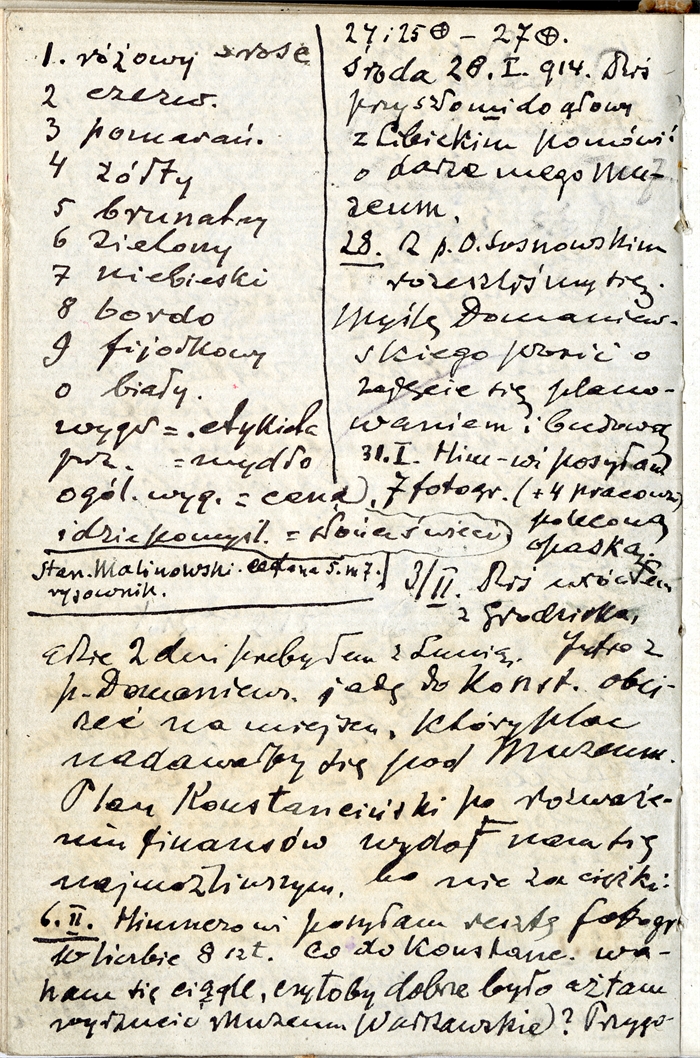 1. różowy rose
2 czerw.
3 pomarań.
4 żółty
5 brunatny
6 zielony
7 niebieski
8 bordo
9 fijołkowy
0 biały.
wygr = etykieta
prz. = mydło
ogól. wyg. = cena
i dzie pomysł. =
Stan. Malinowski. 5. m 7.
rysownik.
24 i 25 ⊕ – 27 ⊕.
Środa 28. I. 914. Dziś
przyszło mi do głowy
z Libickim pomówić
o darze mego Mu-
zeum.
28. Z p. O. Sosnowskim
rozeszliśmy się.
Myślę Domaniew-
skiego prosić o
zajęcie się plano-
waniem i budową
31. I. Him-wi posyłam
7 fotogr. (+ 4 pracowni)
poleconą
opaską.
3/II. Dziś wróciłem
z Grodziska,
gdzie 2 dni przebyłem z Lunią. Jutro z
p. Domaniew. jadę do Konst. obej-
rzeć na miejscu, który plac
nadawałby się pod Muzeum.
Plan Konstanciński po rozważe-
niu finansów wydał nam się
najmożliwszym, bo nie za ciężki.
6. II. Himmerowi posyłam resztę fotogr
w liczbie 8 szt. Co do Konstanc. wa-
ham się ciągle, czyłoby dobrze było aż tam
wyrzucić Muzeum (Warszawskie)? Przygo-